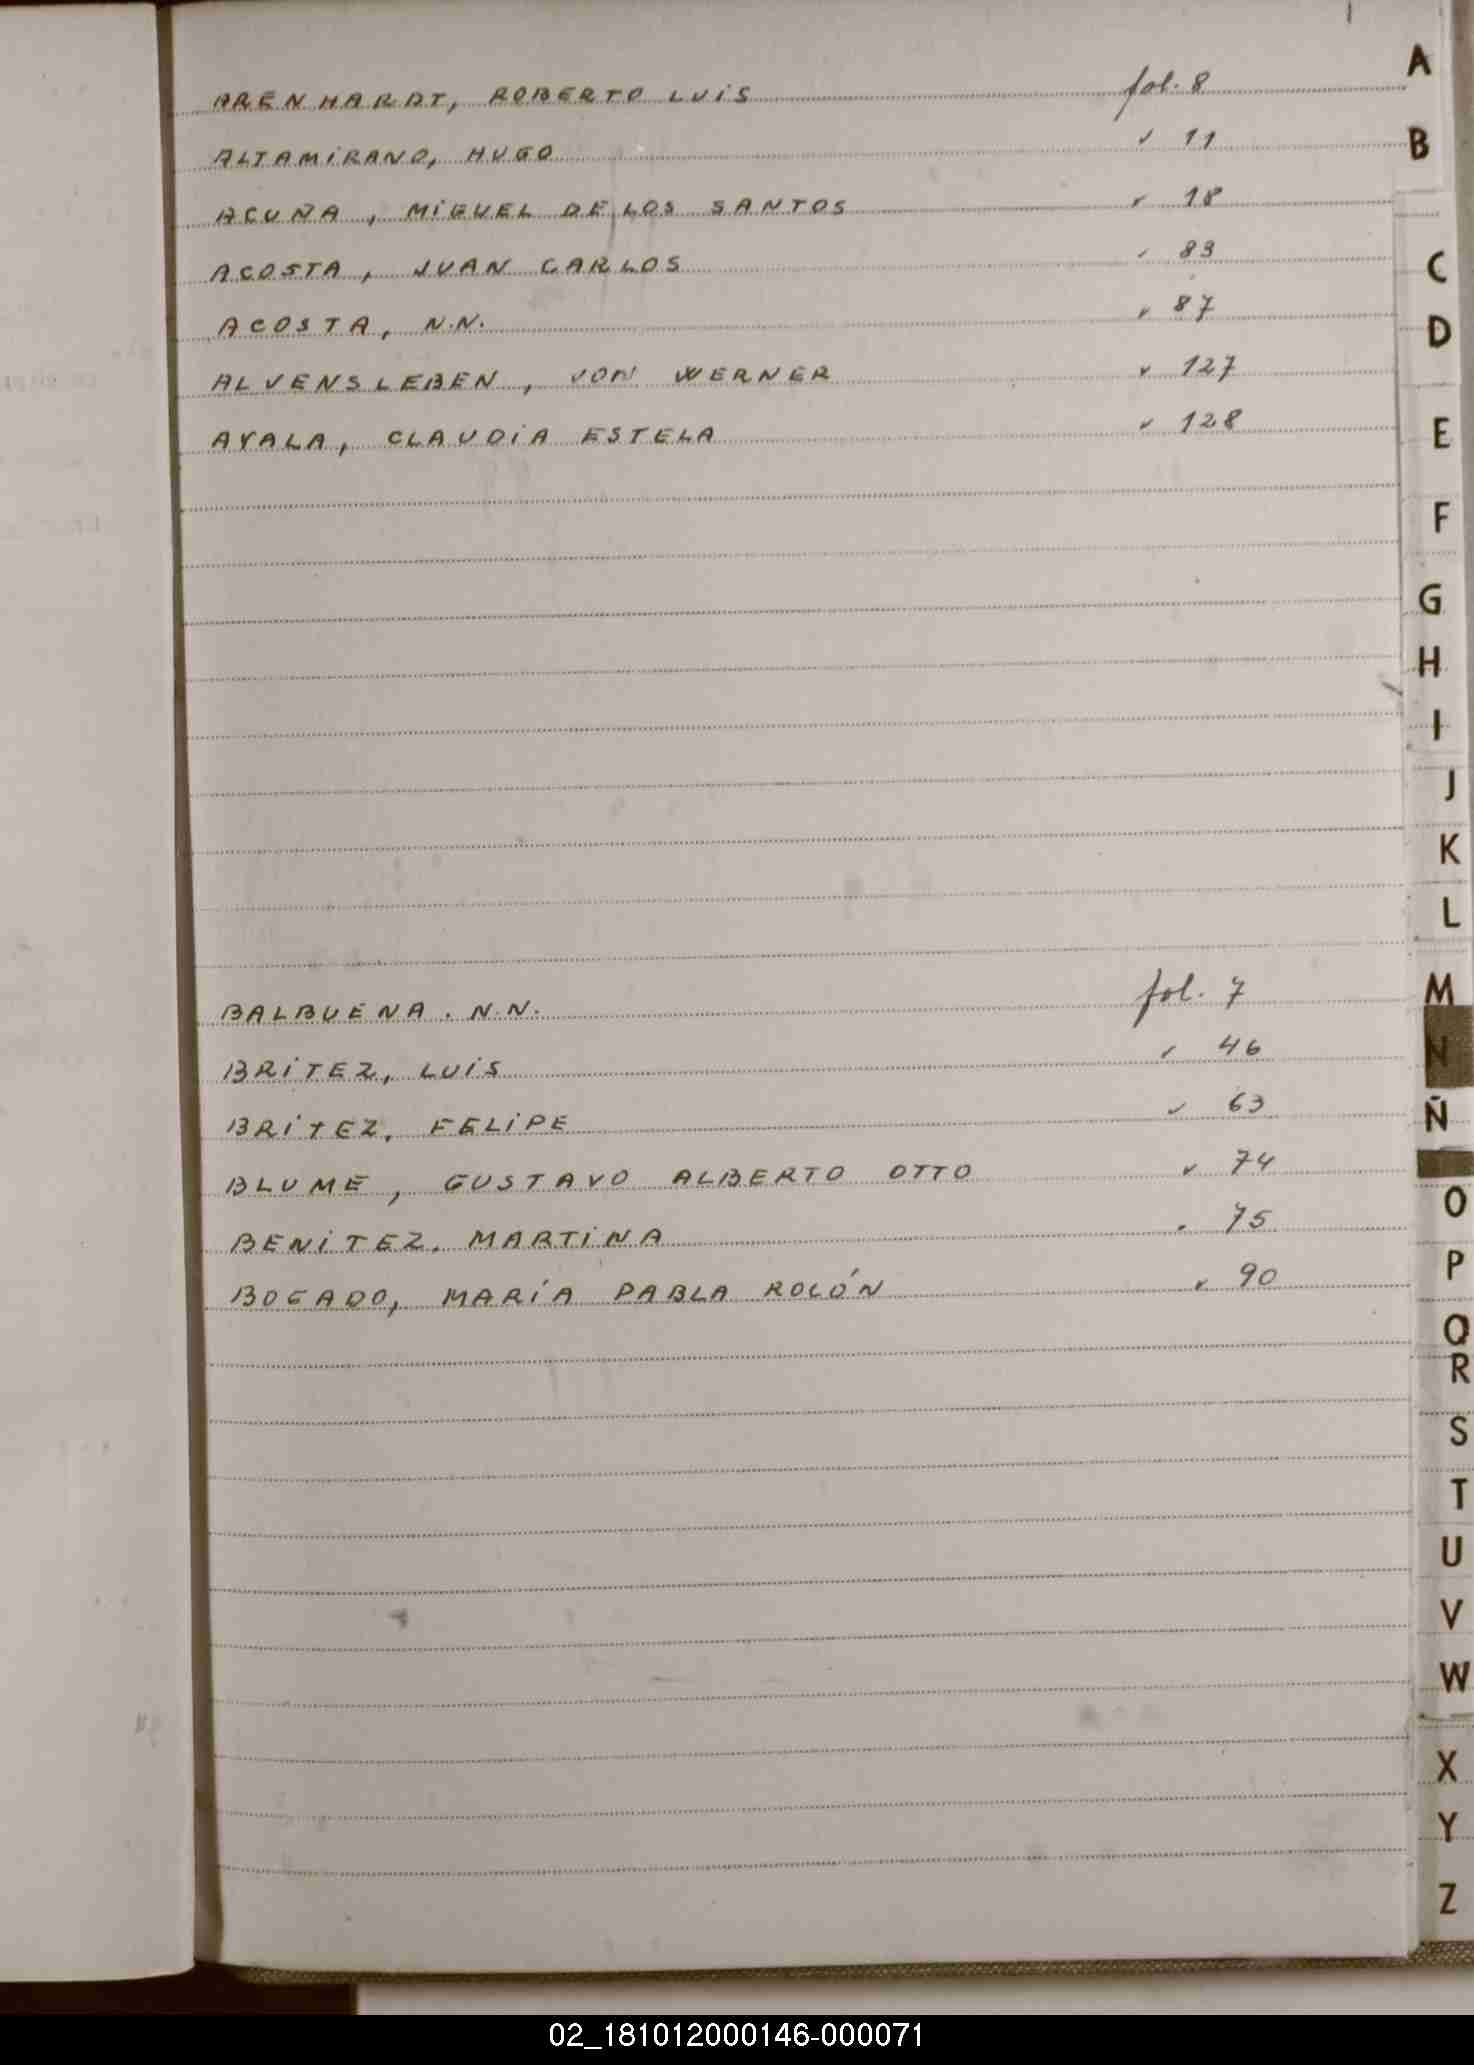 ARENHARDT, ROBERTO LUiS fol. 8
ALTAMiRANO, HUGO " 11
ACUÑA, MiGUEL DE LOS SANTOS " 18
ACOSTA, JUAN CARLOS " 83
ACOSTA, N.N. " 87
ALVENSLEBEN, VON WERNER " 127
AYALA, CLAUDiA ESTELA " 128
BALBUENA. N.N. fol. 7
BRiTEZ, LUiS " 46
BRiTEZ, FELiPE " 63
BLUME, GUSTAVO ALBERTO OTTO " 74
BENiTEZ, MARTiNA " 75
BOGADO, MARÍA PABLA ROLÓN " 90
A
B
C
D
E
F
G
H
I
J
K
L
M
N
Ñ
O
P
Q
R
S
T
U
V
W
X
Y
Z
02_181012000146-000071